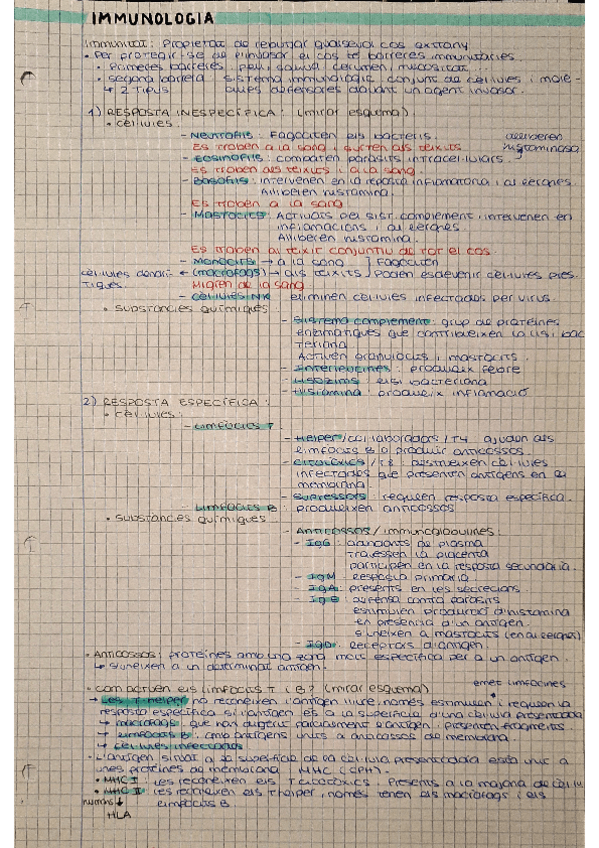 IMMUNOLOGIA
Immunitat: Propietat de rebutjar qualsevol cos estrany
• Per protegir-se de l'invasor el cos té barreres immunitàries.
• Primeres barreres: pell, saliva, cerumen, mucositat...
• segona barrera: sistema immunològic: conjunt de cèl·lules i molè-
↳ 2 TIPUS cules defensores davant un agent invasor.
1) RESPOSTA INESPECÍFICA: (mirar esquema).
• cèl·lules:
- Neutròfils: Fagociten els bacteris.
Es troben a la sang i surten als teixits
alliberen histaminasa
- Eosinòfils: combaten paràsits intracel·lulars.
Es troben als teixits i a la sang.
- Basòfils: intervenen en la reposta inflamatòria i al·lèrgies.
Alliberen histamina.
Es troben a la sang
- Mastòcits: Activats pel sist. complement, intervenen en
inflamacions i al·lèrgies.
Alliberen histamina.
Es troben al teixit conjuntiu de tot el cos
- Monòcits → a la sang } Fagociten
cèl·lules dendrí- ← (macròfags) → als teixits } Poden esdevenir cèl·lules pres.
tiques. Migren de la sang
- Cèl·lules NK: eliminen cèl·lules infectades per virus.
• Substàncies químiques:
- Sistema complement: grup de proteïnes
enzimàtiques que contribueixen la lisi bac
teriana
Activen granulòcits i mastòcits.
- Interleucines: produeix febre
- Lisozims: lisi bacteriana
- Histamina: produeix inflamació
2) RESPOSTA ESPECÍFICA:
• cèl·lules:
- Limfòcits T:
- Helper / col·laboradors / T4: ajuden als
limfòcits B a produir anticossos.
- Citotòxics / T8: destrueixen cèl·lules
infectades que presenten antígens en la
membrana.
- Supressors: regulen resposta específica.
- Limfòcits B: produeixen anticossos
• Substàncies químiques:
- Anticossos / immunoglobulines:
- IgG: abundants de plasma
Travessen la placenta
participen en la resposta secundària.
- IgM: Resposta primària.
- IgA: presents en les secrecions.
- IgE: defensa contra paràsits
estimulen producció d'histamina
en presència d'un antigen.
s'uneixen a mastòcits (en al·lèrgies)
- IgD: Receptors d'antigen.
• Anticossos: proteïnes amb una zona molt específica per a un antigen.
↳ s'uneixen a un determinat antigen.
• Com actuen els limfòcits T i B? (mirar esquema) emet limfocines
→ Les T helper no reconeixen l'antigen lliure, només estimulen i regulen la
resposta específica si l'antigen és a la superfície d'una cèl·lula presentadora
↳ macròfags: que han digerit parcialment l'antigen i presenten fragments.
↳ limfòcits B: amb antígens units a anticossos de membrana.
↳ cèl·lules infectades
• L'antigen situat a la superfície de la cèl·lula presentadora està unit a
unes proteïnes de membrana: MHC (CPH).
• MHC I: les reconeixen els T citotòxics. Presents a la majoria de cèl·lu
• MHC II: les reconeixen els T helper, només tenen els macròfags i els
humans ↓ limfòcits B
HLA